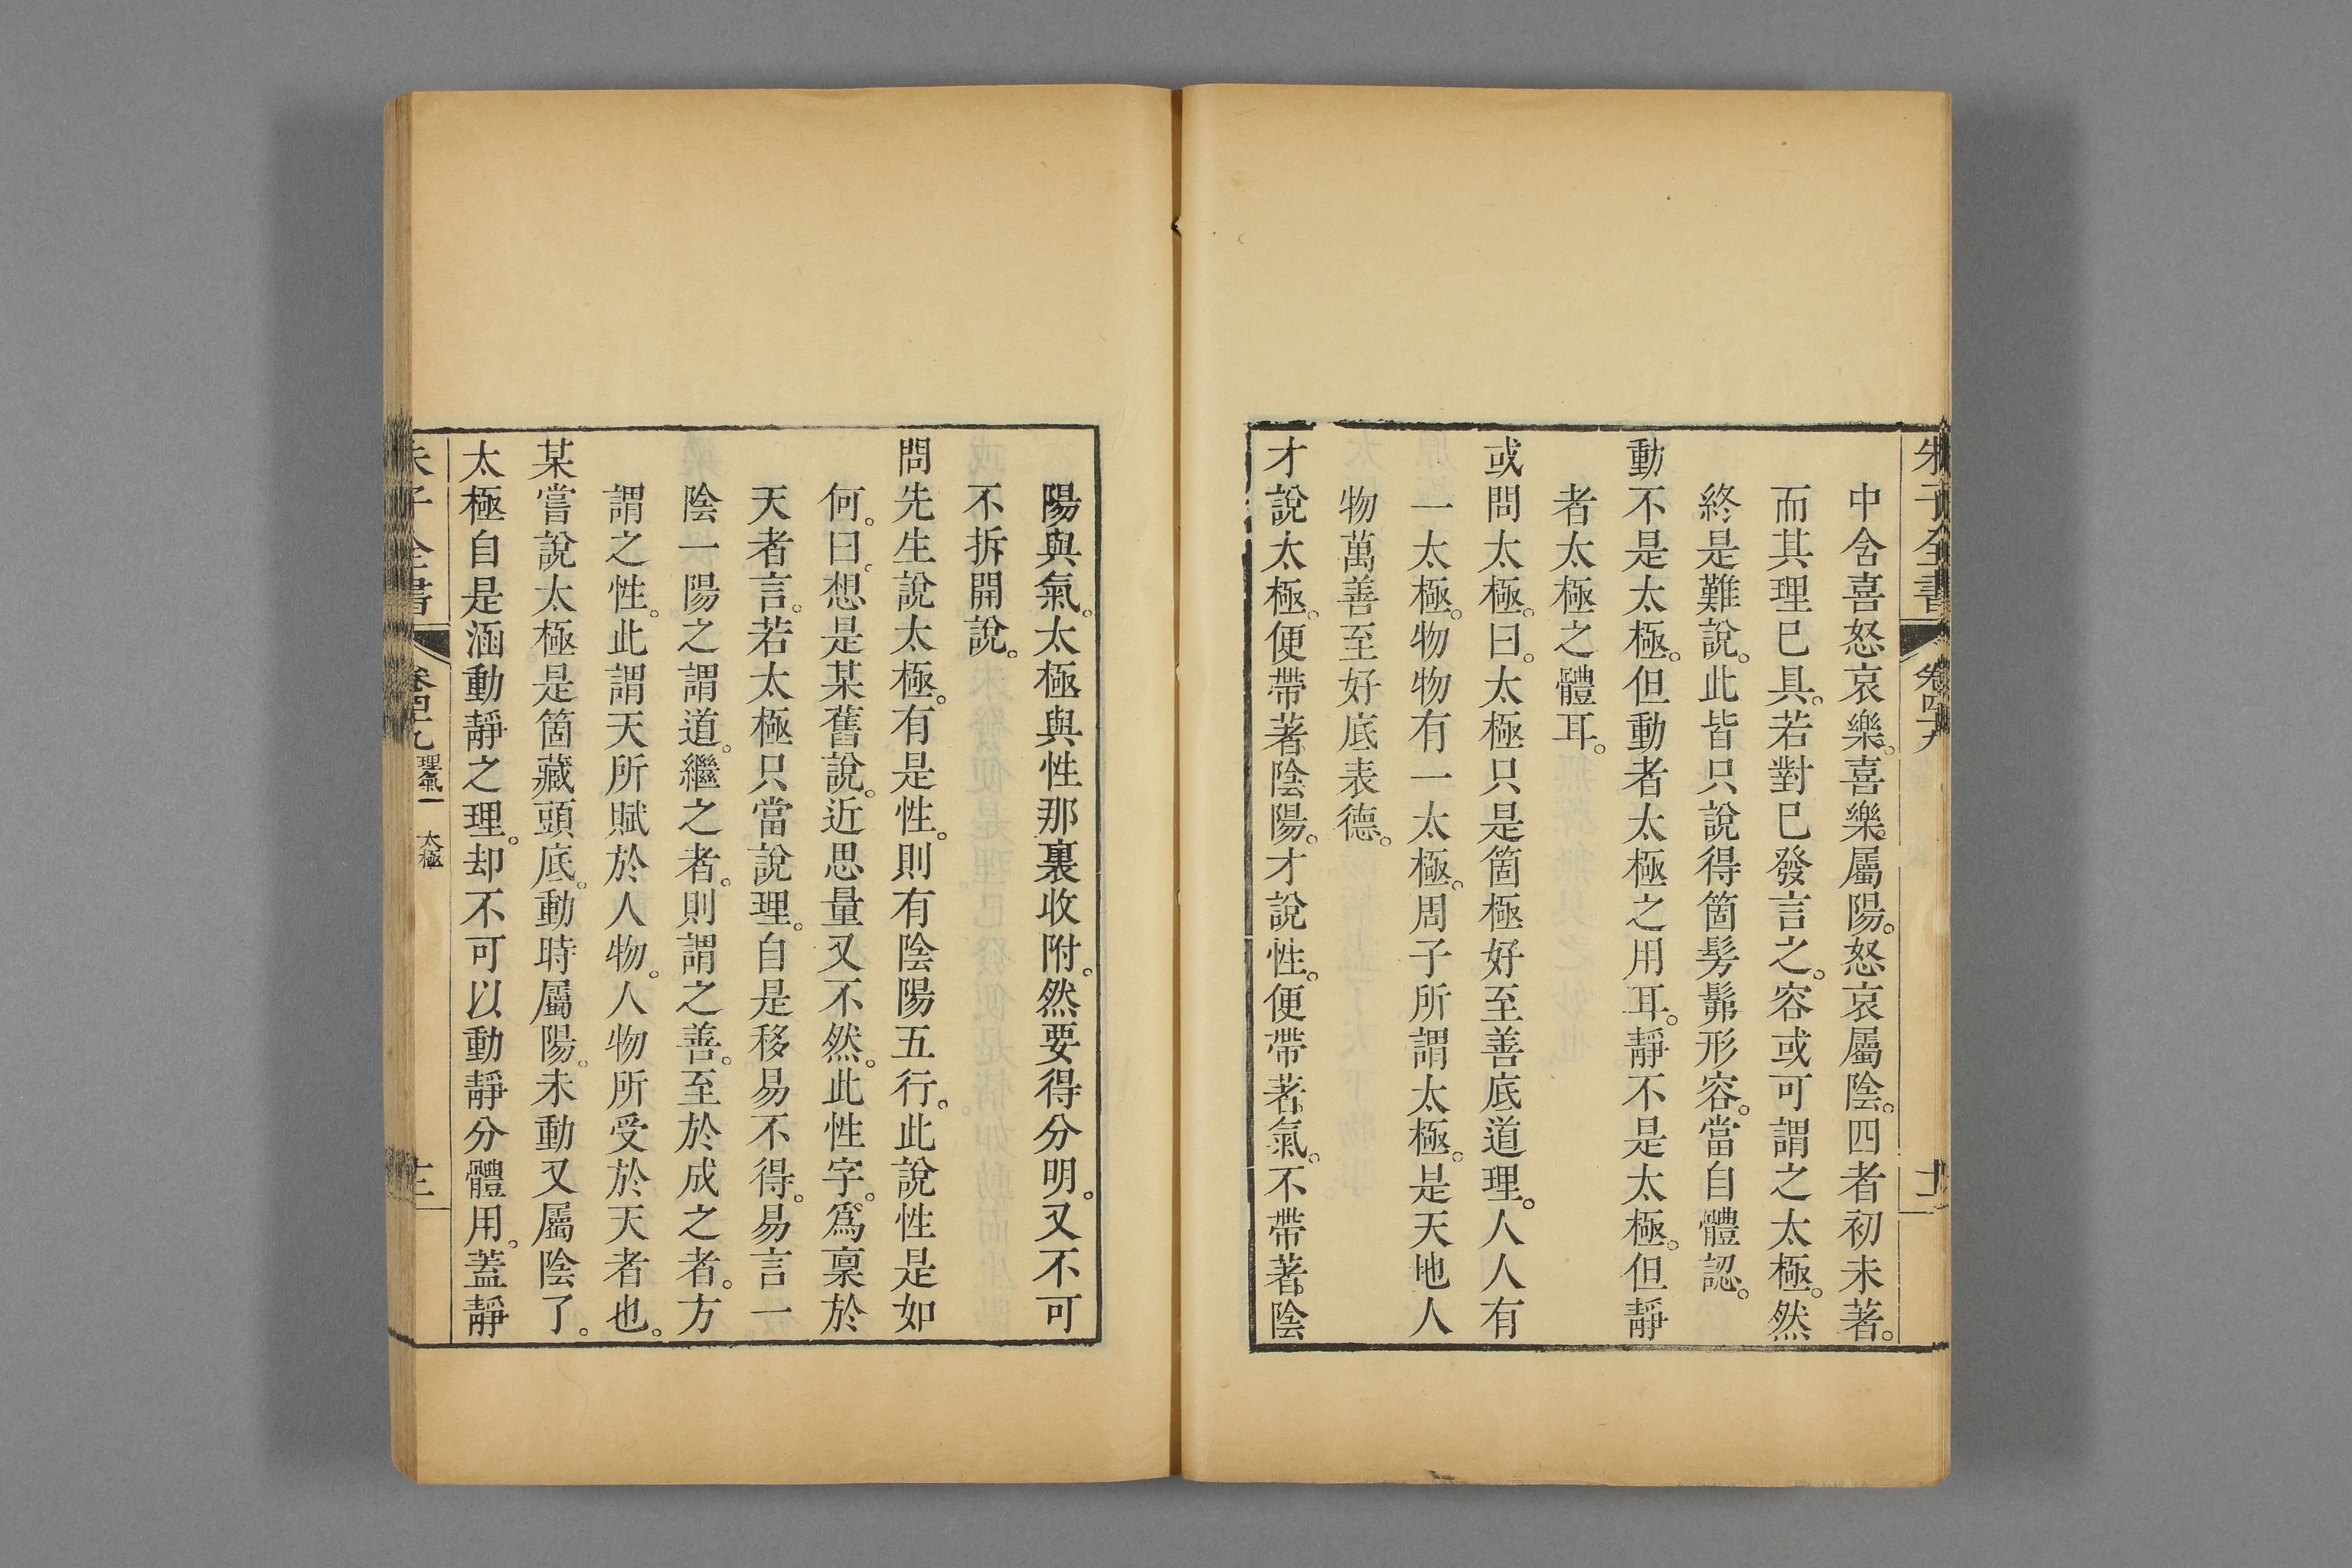 朱子全書 卷四十九
中含喜怒哀樂。喜樂屬陽。怒哀屬陰。四者初未著。
而其理已具。若對已發言之。容或可謂之太極。然
終是難說。此皆只說得箇髣髴形容。當自體認。
動不是太極。但動者太極之用耳。靜不是太極。但靜
者太極之體耳。
或問太極。曰。太極只是箇極好至善底道理。人人有
一太極。物物有一太極。周子所謂太極。是天地人
物萬善至好底表德。
才說太極。便帶著陰陽。才說性。便帶著氣。不帶著陰
陽與氣。太極與性那裏收附。然要得分明。又不可
不拆開說。
問先生說太極。有是性。則有陰陽五行。此說性是如
何。曰。想是某舊說。近思量又不然。此性字。爲稟於
天者言。若太極只當說理。自是移易不得。易言一
陰一陽之謂道。繼之者。則謂之善。至於成之者。方
謂之性。此謂天所賦於人物。人物所受於天者也。
某嘗說太極是箇藏頭底。動時屬陽。未動又屬陰了。
太極自是涵動靜之理。却不可以動靜分體用。蓋靜
朱子全書 卷四十九 理氣一 太極